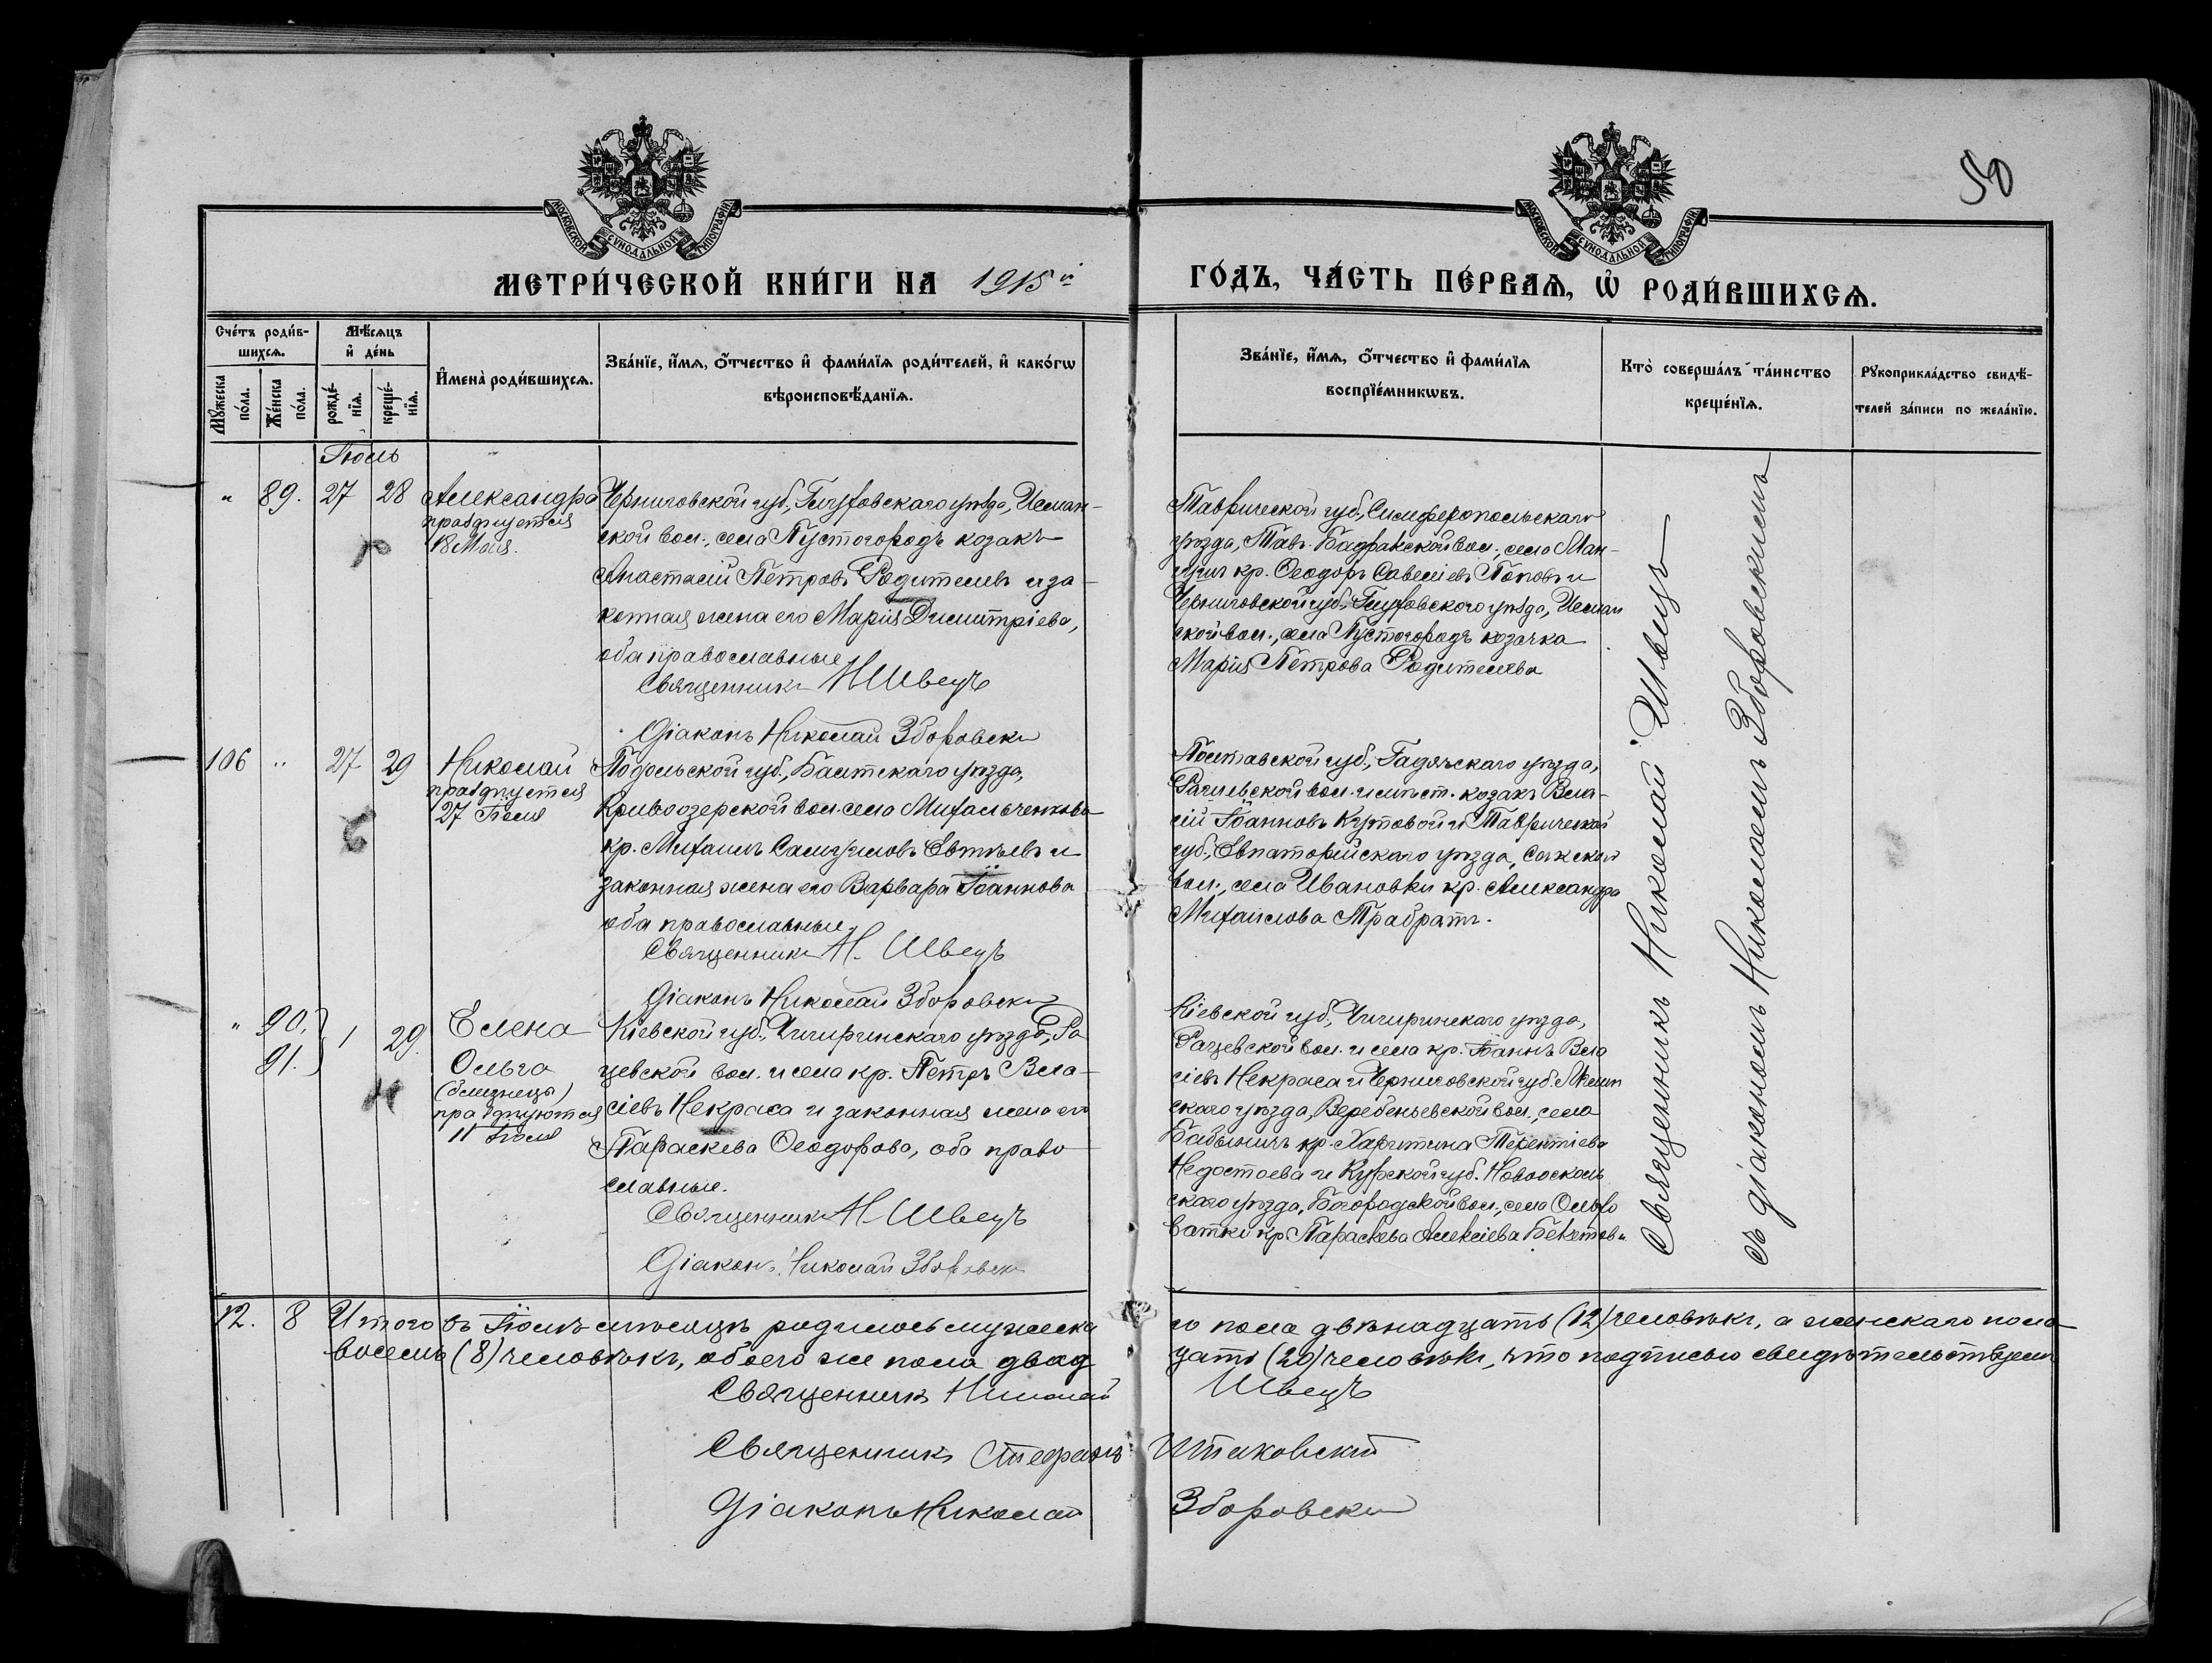 50
МОСКОВСКОЙ СѴНОДАЛЬНОЙ ТИПОГРАФІИ
МОСКОВСКОЙ СѴНОДАЛЬНОЙ ТИПОГРАФІИ
МЕТРИ́ЧЕСКОЙ КНИ́ГИ НА 1915й ГО́ДЪ, ЧА́СТЬ ПЕ́РВАѦ, Ѡ҆ РОДИ́ВШИХСѦ.
Сче́тъ роди́в-
шихсѧ.
Мѹ́жеска по́ла.
Же́нска по́ла.
Мѣ́сѧцъ
и҆ де́нь
рожде́-
нїѧ.
креще́-
нїѧ.
И҆мена̀ роди́вшихсѧ.
Зва́нїе, и҆́мѧ, ѻ҆́тчество и҆ фами́лїѧ роди́телей, и҆ како́гѡ
вѣроисповѣ́данїѧ.
Зва́нїе, и҆́мѧ, ѻ҆́тчество и҆ фами́лїѧ
воспрїе́мникѡвъ.
Кто̀ соверша́лъ та́инство
креще́нїѧ.
Рꙋкоприкла́дство свидѣ́-
телей за́писи по жела́нїю.
Іюль
" 89. 27 28
Александра
празднуется
18 Мая.
Черниговской губ., Глуховскаго уѣзда, Эсман-
ской вол., села Пустогородъ козакъ
Анастасій Петровъ Родителевъ и за-
конная жена его Марія Димитріева,
оба православные
Священникъ Н Швецъ
Діаконъ Николай Зборовски
Таврической губ., Симферопольскаго
уѣзда, Тав-Бадракской вол., село Ман-
гушъ кр. Ѳеодоръ Савеліевъ Поповъ и
Черниговской губ., Глуховскаго уѣзда, Эсман
ской вол., села Пустогородъ козачка
Марія Петрова Родителева
106 " 27 29
Николай
празднуется
27 Іюля
Подольской губ., Балтскаго уѣзда,
Кривоозерской вол. села Михальченкова
кр. Михаилъ Самуиловъ Евтѣевъ и
законная жена его Варвара Іоаннова
оба православные
Священникъ Н. Швецъ
Діаконъ Николай Зборовски
Полтавской губ., Гадячскаго уѣзда,
вол. и мѣст. козакъ
Іоанновъ Кутовой и Таврической
губ., Евпаторійскаго уѣзда, Сакской
вол., села Ивановки кр. Александра
Михаилова
" 90. } 1 29.
91. }
Елена
Ольга
(близнецы)
празднуются
11 Іюля
Кіевской губ., Чигиринскаго уѣзда, Ра
цевской вол. и села кр. Петръ Вла-
сіевъ Некраса и законная жена его
Параскева Ѳеодорова, оба право
славные.
Священникъ Н. Швецъ
Діаконъ Николай Зборовски
Кіевской губ., Чигиринскаго уѣзда,
Рацевской вол. и села кр. Іоаннъ Вла
сіевъ Некраса и Черниговской губ.
скаго уѣзда, вол., села
кр. Харитина Терентіева
Недостоева и Курской губ. Новооскол
скаго уѣзда, Богородской вол., села Ольхо
ватки кр Параскева Алексіева Бекетова
Священникъ Николай Швецъ
съ діакономъ Николаемъ Зборовскимъ
12. 8 Итого въ Іюлѣ мѣсяцѣ родилось мужеска го пола двѣнадцать (12) человѣкъ, а женскаго пола
восемь (8) человѣкъ, обоего же пола двад цать (20) человѣкъ, что подписью свидѣтельствуемъ
Священникъ Николай Швецъ
Священникъ Стефанъ
Діаконъ Николай Зборовски